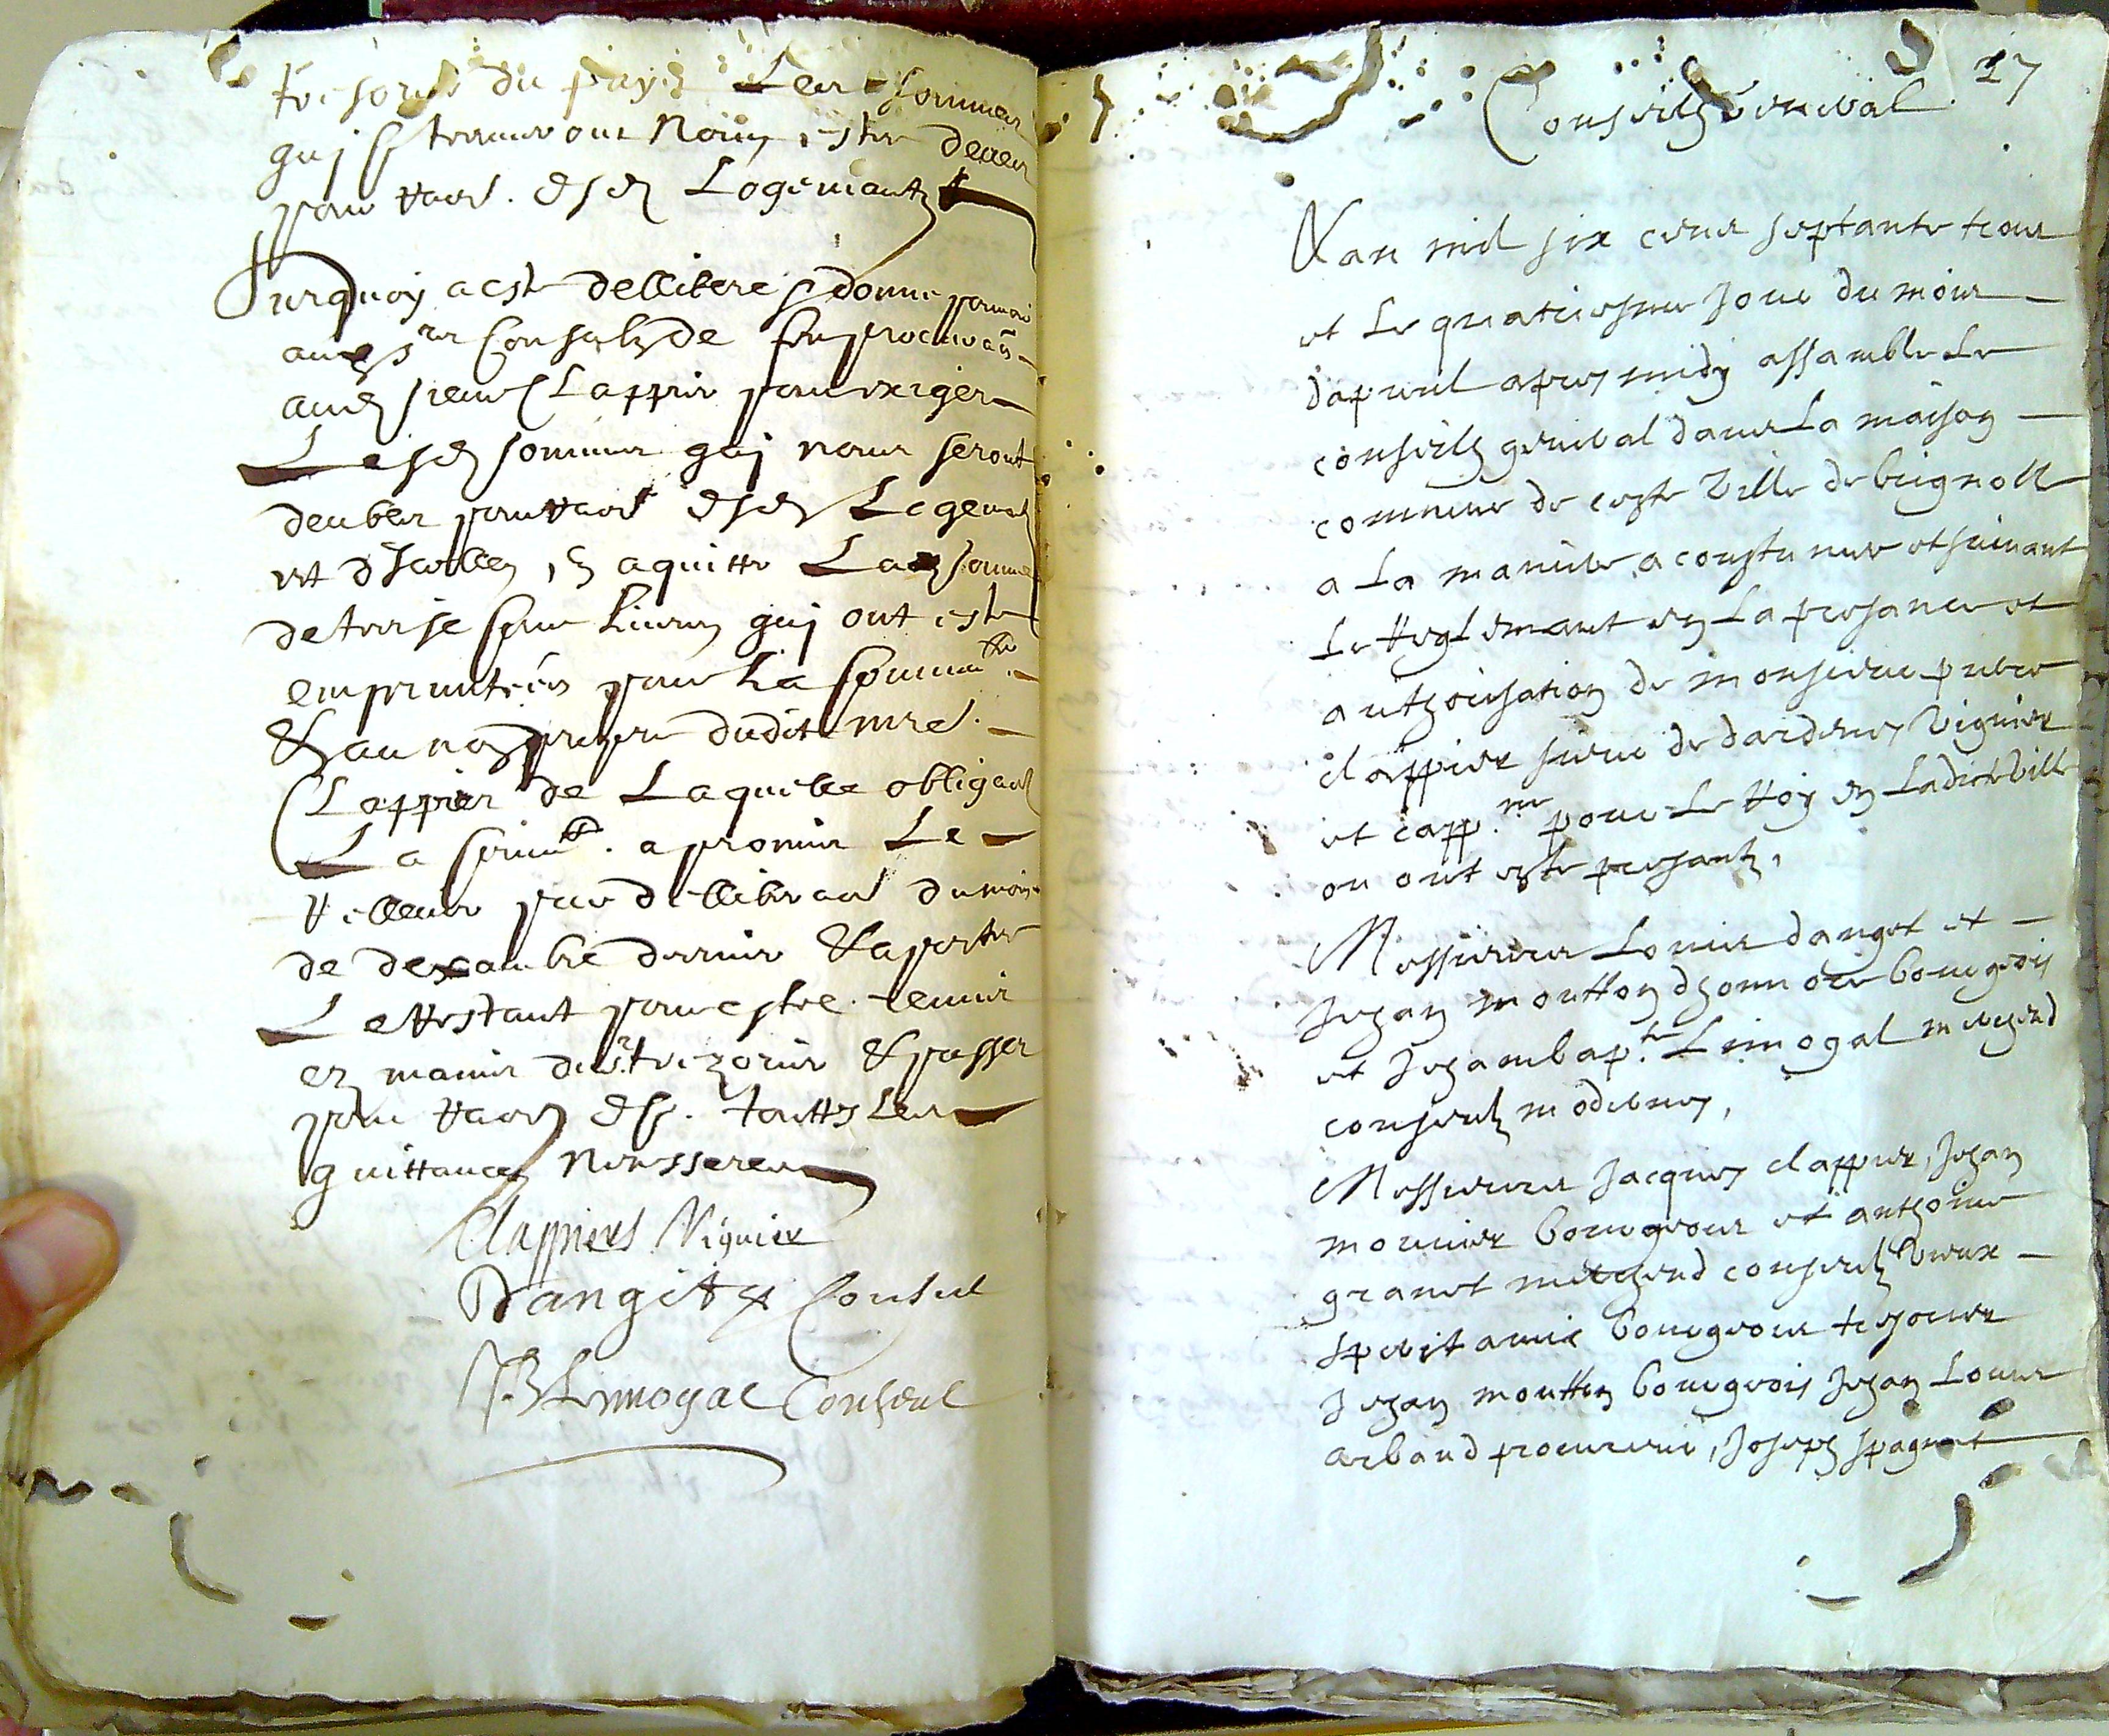 tresorier du pays les sommes
quj se treuveront nous estre deues
pour raon. desd. Logemants
Surquoy a este dellibere donne pouvoir
aud. srs Consulz de fre procuraon
aud. sieur Clappier pour exiger
Lesd. sommes quj nous seront
deubes pour raon desd. Logemts
et d'icelles, aquitter Lad. somme
de treise cens livres quj ont este
empruntées pour La Commte.
& au nom propre dudit mre.
Clappier de Laquelle obligaon
La Commte. a promis Le
rellever par dellibraon du mois
de dexambre dernier & apporter
Le restant pour estre remis
ez mains du sr. trezorier & passer
pour raon de ce. touttes Les
quittances necesseres
Clappiers Viguier
Dangit Consul
JB Limogal Consul
17
Conseilz General
L'an mil six cens septante trois
et le quatriesme Jour du mois
d'apvril apres midy assamble Le
conseilz general dans La maison
commune de ceste Ville de brignolle
a La maniere acoustumee et suivant
Le Reglemant en La presance et
authorisation de monsieur pierre
clappier sieur de dardenes Viguier
et capp.ne pour Le Roy en Ladicte Ville
ou ont este presantz,
Messieurs Louis danget et
Jehan moutton d'honnore bourgeois
et Jehan bap.te Limogal marchand
consulz modernes,
Messieurs Jacques clappier, Jehan
monnier bourgeois et anthoine
granet merchand consulz vieux
Sperit amic bourgeois tresorier
Jehan moutton bourgeois Jehan Louis
arbaud procureur, Joseph spagnet